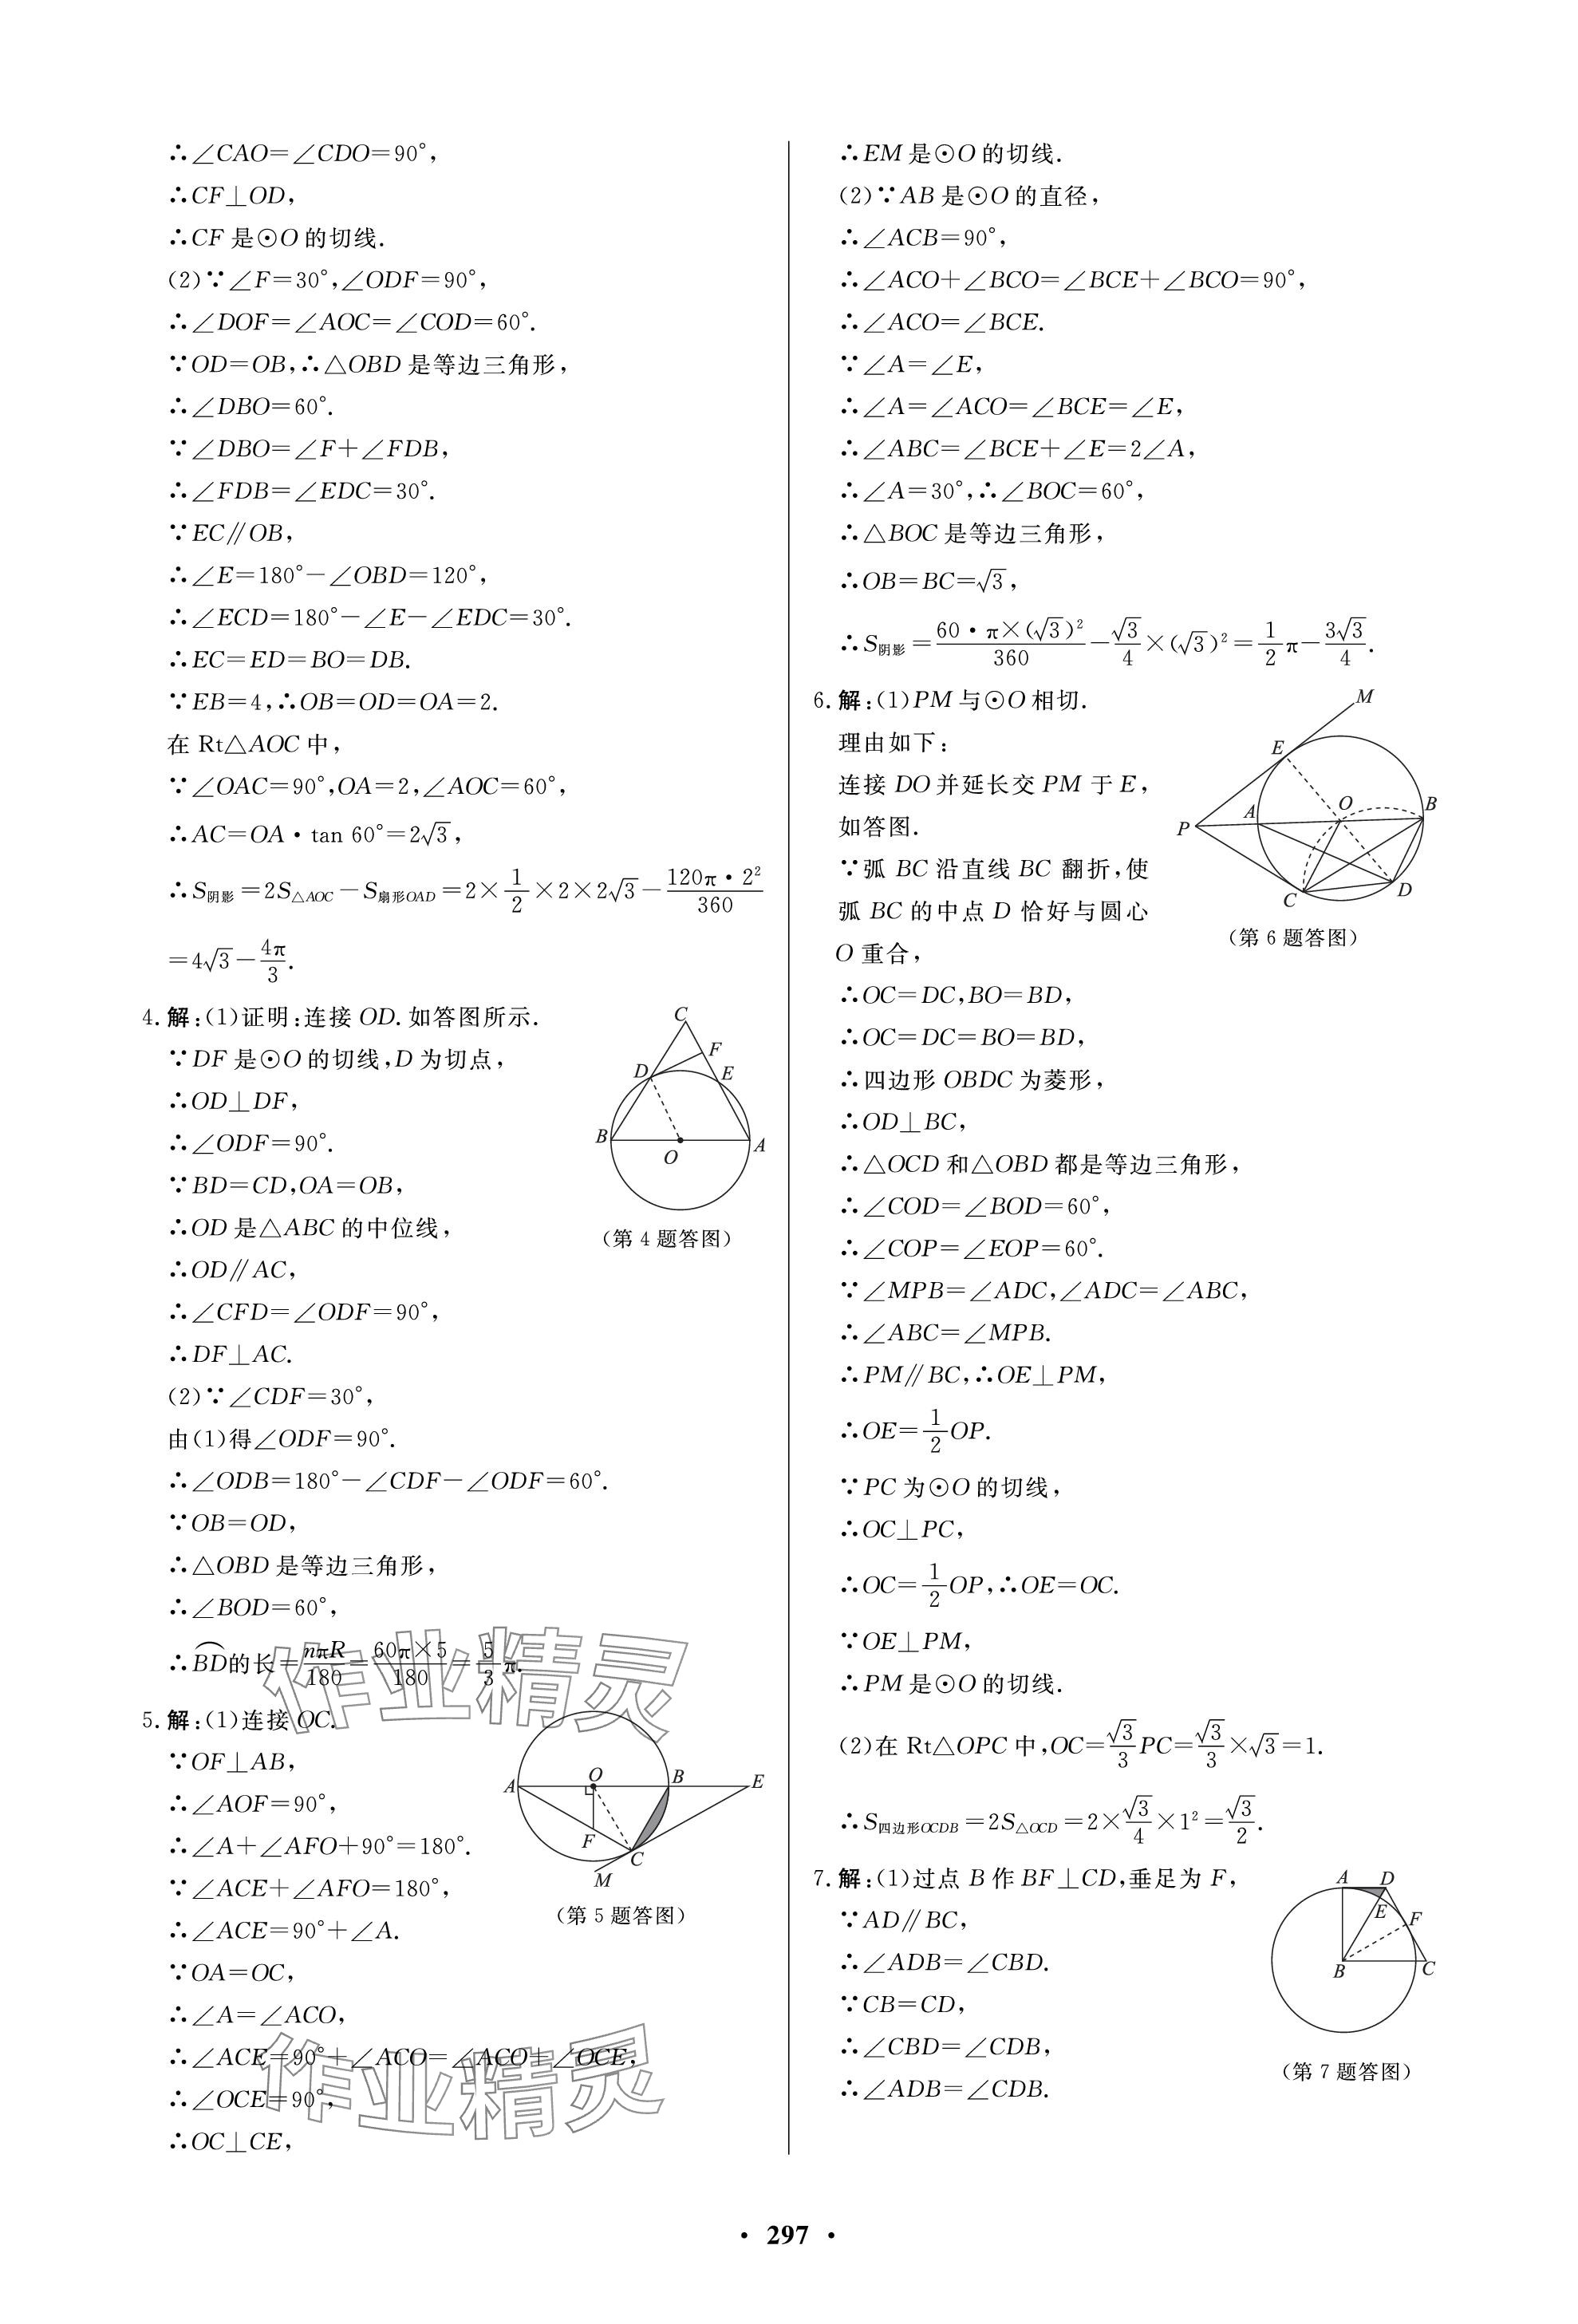 ∴∠CAO=∠CDO=90°,
∴CF⊥OD,
∴CF 是⊙O 的切线.
(2)∵∠F=30°,∠ODF=90°,
∴∠DOF=∠AOC=∠COD=60°.
∵OD=OB,∴△OBD 是等边三角形,
∴∠DBO=60°.
∵∠DBO=∠F+∠FDB,
∴∠FDB=∠EDC=30°.
∵EC∥OB,
∴∠E=180°-∠OBD=120°,
∴∠ECD=180°-∠E-∠EDC=30°.
∴EC=ED=BO=DB.
∵EB=4,∴OB=OD=OA=2.
在 Rt△AOC 中,
∵∠OAC=90°,OA=2,∠AOC=60°,
∴AC=OA·tan 60°=2√3,
∴S阴影=2S△AOC-S扇形OAD=2×1/2×2×2√3-120π·2²/360
=4√3-4π/3.
4. 解:(1)证明:连接 OD.如答图所示.
∵DF 是⊙O 的切线,D 为切点,
∴OD⊥DF,
∴∠ODF=90°.
∵BD=CD,OA=OB,
∴OD 是△ABC 的中位线,
∴OD∥AC,
∴∠CFD=∠ODF=90°,
∴DF⊥AC.
C
F
D
E
B
A
O
(第 4 题答图)
(2)∵∠CDF=30°,
由(1)得∠ODF=90°.
∴∠ODB=180°-∠CDF-∠ODF=60°.
∵OB=OD,
∴△OBD 是等边三角形,
∴∠BOD=60°,
∴⌒BD的长=nπR/180=60π×5/180=5/3π.
5. 解:(1)连接 OC.
∵OF⊥AB,
∴∠AOF=90°,
∴∠A+∠AFO+90°=180°.
∵∠ACE+∠AFO=180°,
∴∠ACE=90°+∠A.
∵OA=OC,
∴∠A=∠ACO,
∴∠ACE=90°+∠ACO=∠ACO+∠OCE,
∴∠OCE=90°,
∴OC⊥CE,
O
B
E
A
F
C
M
(第 5 题答图)
作业精灵
作业精灵
∴EM 是⊙O 的切线.
(2)∵AB 是⊙O 的直径,
∴∠ACB=90°,
∴∠ACO+∠BCO=∠BCE+∠BCO=90°,
∴∠ACO=∠BCE.
∵∠A=∠E,
∴∠A=∠ACO=∠BCE=∠E,
∴∠ABC=∠BCE+∠E=2∠A,
∴∠A=30°,∴∠BOC=60°,
∴△BOC 是等边三角形,
∴OB=BC=√3,
∴S阴影=60·π×(√3)²/360-√3/4×(√3)²=1/2π-3√3/4.
6. 解:(1)PM 与⊙O 相切.
理由如下:
连接 DO 并延长交 PM 于 E,
如答图.
∵弧 BC 沿直线 BC 翻折,使
弧 BC 的中点 D 恰好与圆心
O 重合,
M
E
A
O
B
P
C
D
(第 6 题答图)
∴OC=DC,BO=BD,
∴OC=DC=BO=BD,
∴四边形 OBDC 为菱形,
∴OD⊥BC,
∴△OCD 和△OBD 都是等边三角形,
∴∠COD=∠BOD=60°,
∴∠COP=∠EOP=60°.
∵∠MPB=∠ADC,∠ADC=∠ABC,
∴∠ABC=∠MPB.
∴PM∥BC,∴OE⊥PM,
∴OE=1/2OP.
∵PC 为⊙O 的切线,
∴OC⊥PC,
∴OC=1/2OP,∴OE=OC.
∵OE⊥PM,
∴PM 是⊙O 的切线.
(2)在 Rt△OPC 中,OC=√3/3PC=√3/3×√3=1.
∴S四边形OCDB=2S△OCD=2×√3/4×1²=√3/2.
7. 解:(1)过点 B 作 BF⊥CD,垂足为 F,
∵AD∥BC,
∴∠ADB=∠CBD.
∵CB=CD,
∴∠CBD=∠CDB,
∴∠ADB=∠CDB.
A
D
E
F
B
C
(第 7 题答图)
· 297 ·